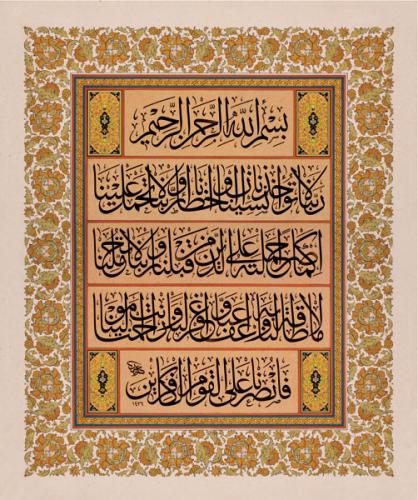 بِسْمِ اللَّهِ الرَّحْمَنِ الرَّحِيمِ
رَبَّنَا لَا تُؤَاخِذْنَا إِنْ نَسِينَا أَوْ أَخْطَأْنَا رَبَّنَا وَلَا تَحْمِلْ عَلَيْنَا
إِصْرًا كَمَا حَمَلْتَهُ عَلَى الَّذِينَ مِنْ قَبْلِنَا رَبَّنَا وَلَا تُحَمِّلْنَا
مَا لَا طَاقَةَ لَنَا بِهِ وَاعْفُ عَنَّا وَاغْفِرْ لَنَا وَارْحَمْنَا أَنْتَ مَوْلَينَا
فَانْصُرْنَا عَلَى الْقَوْمِ الْكَافِرِينَ